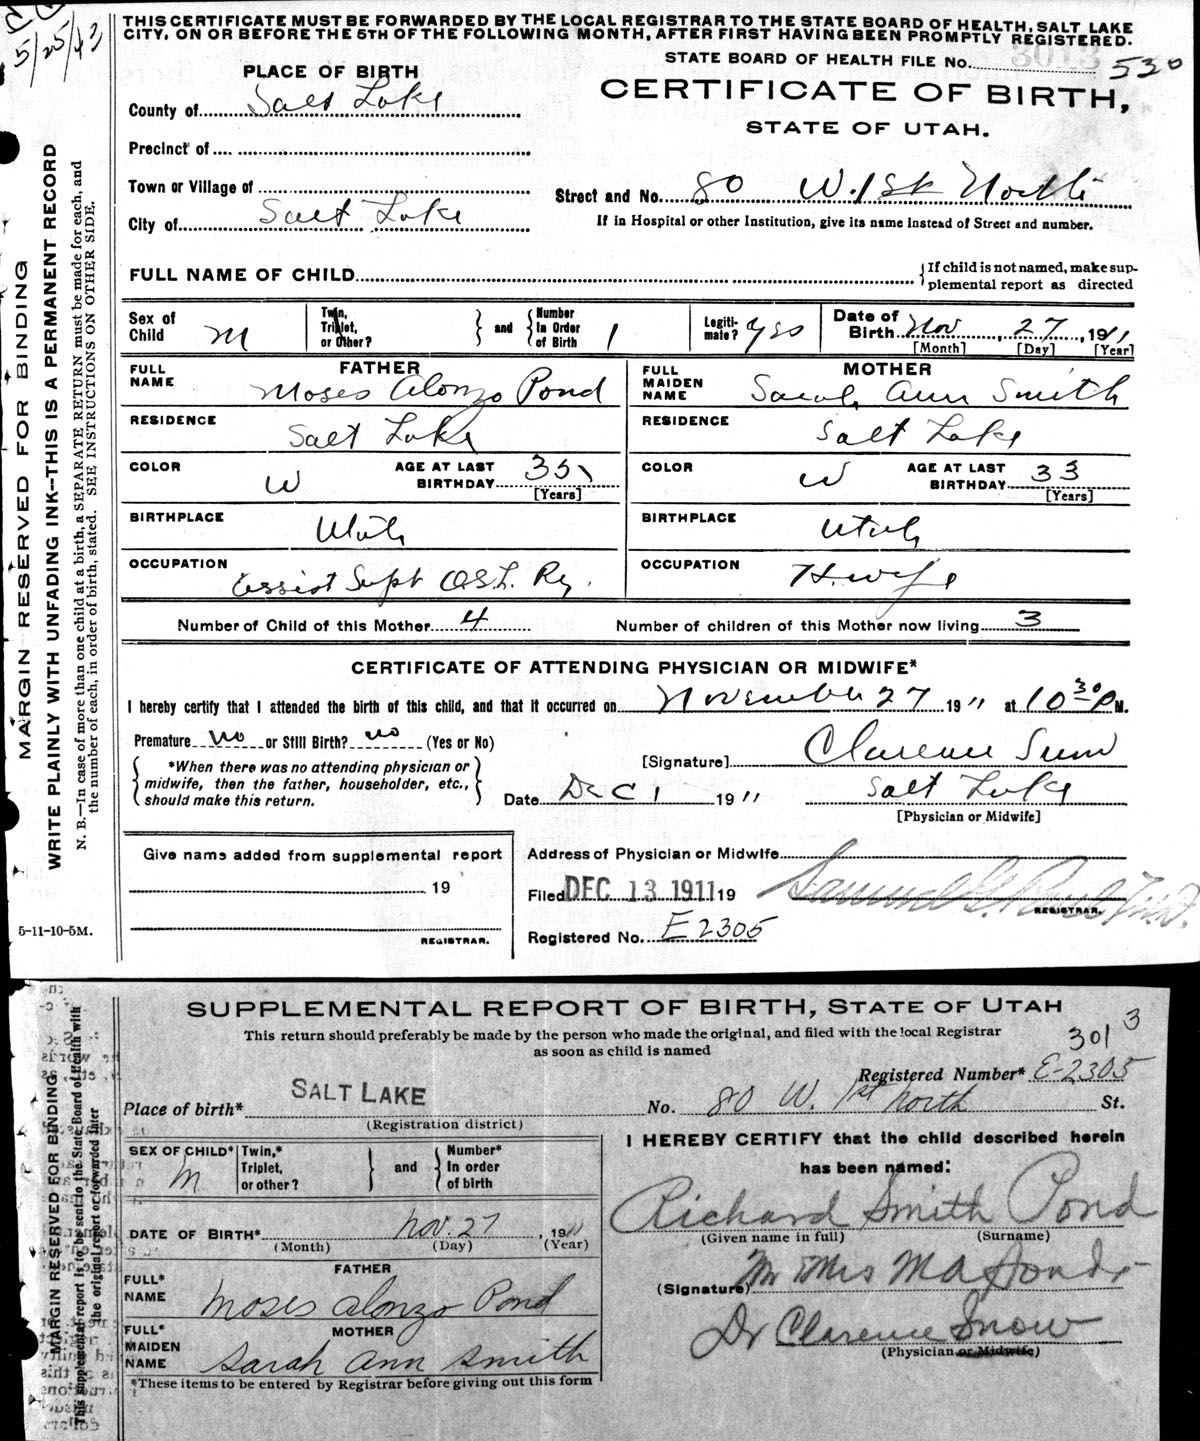 5/25/43
THIS CERTIFICATE MUST BE FORWARDED BY THE LOCAL REGISTRAR TO THE STATE BOARD OF HEALTH, SALT LAKE
CITY, ON OR BEFORE THE 5TH OF THE FOLLOWING MONTH, AFTER FIRST HAVING BEEN PROMPTLY REGISTERED.
STATE BOARD OF HEALTH FILE No. 3013 530
PLACE OF BIRTH
CERTIFICATE OF BIRTH,
STATE OF UTAH.
County of Salt Lake
Precinct of
Town or Village of
Street and No. 80 W. 1st North
City of Salt Lake
If in Hospital or other Institution, give its name instead of Street and number.
FULL NAME OF CHILD
{If child is not named, make sup-
plemental report as directed
Sex of Child M
Twin, Triplet, or Other?
and
Number In Order of Birth 1
Legiti-mate? yes
Date of Birth Nov 27, 1911
[Month] [Day] [Year]
FATHER
FULL NAME Moses Alonzo Pond
MOTHER
FULL MAIDEN NAME Sarah Ann Smith
RESIDENCE Salt Lake
RESIDENCE Salt Lake
COLOR W AGE AT LAST BIRTHDAY 35 [Years]
COLOR W AGE AT LAST BIRTHDAY 33 [Years]
BIRTHPLACE Utah
BIRTHPLACE Utah
OCCUPATION Assist Supt O.S.L. Ry.
OCCUPATION H.wife
Number of Child of this Mother 4 Number of children of this Mother now living 3
CERTIFICATE OF ATTENDING PHYSICIAN OR MIDWIFE*
I hereby certify that I attended the birth of this child, and that it occurred on November 27 1911 at 10 30 P M.
Premature no or Still Birth? no (Yes or No)
*When there was no attending physician or
midwife, then the father, householder, etc.,
should make this return.
[Signature] Clarence Snow
Date Dec 1 1911 Salt Lake
[Physician or Midwife]
Give name added from supplemental report
19
REGISTRAR.
Address of Physician or Midwife
Filed DEC 13 1911 19 Samuel G. Paul M.D.
REGISTRAR.
Registered No. E2305
MARGIN RESERVED FOR BINDING
WRITE PLAINLY WITH UNFADING INK—THIS IS A PERMANENT RECORD
N. B.—In case of more than one child at a birth, a SEPARATE RETURN must be made for each, and
the number of each, in order of birth, stated. SEE INSTRUCTIONS ON OTHER SIDE.
5-11-10-5M.
SUPPLEMENTAL REPORT OF BIRTH, STATE OF UTAH
This return should preferably be made by the person who made the original, and filed with the local Registrar
as soon as child is named
3013
Registered Number* E-2305
Place of birth* SALT LAKE No. 80 W. 1st North St.
(Registration district)
SEX OF CHILD* M
Twin,* Triplet, or other?
and
Number* In order of birth
DATE OF BIRTH* Nov. 27, 1911
(Month) (Day) (Year)
FATHER
FULL* NAME Moses Alonzo Pond
MOTHER
FULL* MAIDEN NAME Sarah Ann Smith
*These items to be entered by Registrar before giving out this form
I HEREBY CERTIFY that the child described herein
has been named:
Richard Smith Pond
(Given name in full) (Surname)
(Signature) Mr & Mrs M A Pond
Dr Clarence Snow
(Physician or Midwife)
MARGIN RESERVED FOR BINDING
This supplemental report is to be sent to the State Board of Health with
the original report or forwarded later